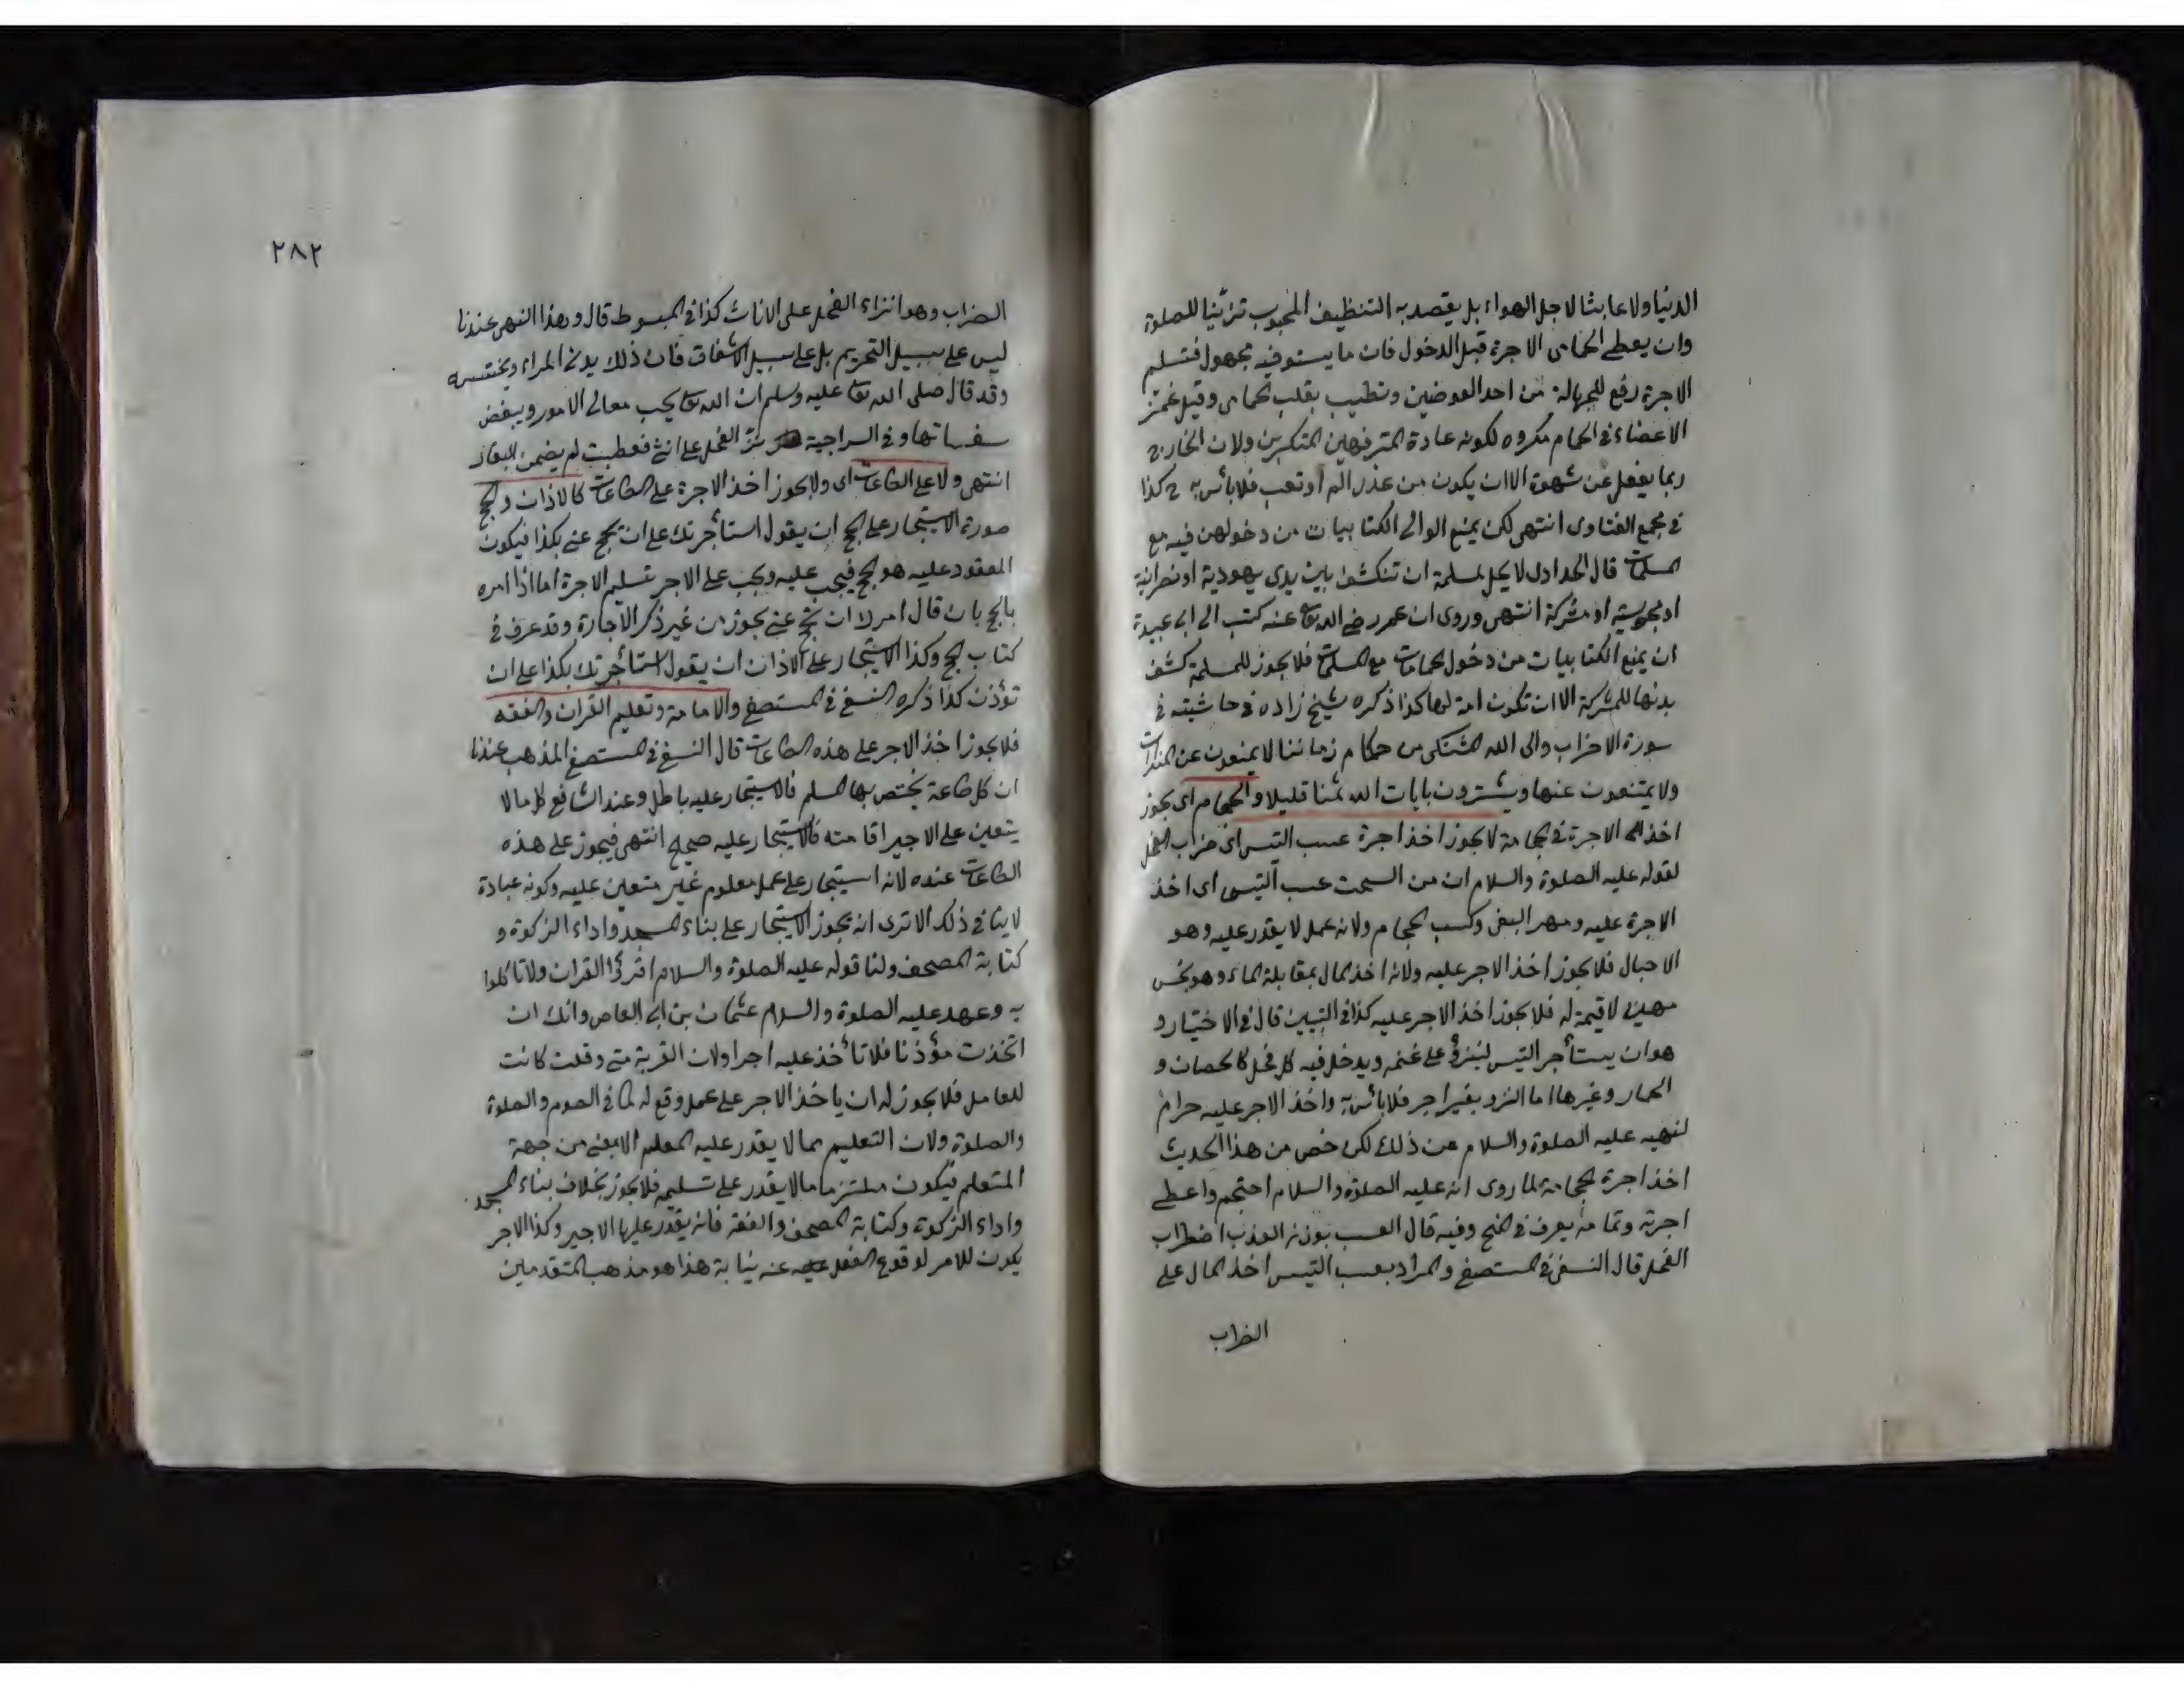 الدنيا ولا عابثا لاجل الهواء بل يقصد به التنظيف المحبوب تزينا للصلوة
وان يعطى الحمامى الاجرة قبل الدخول فان ما يستوفيه مجهول فتسلم
الاجرة رفع للجهالة من احد العوضين وتطييب بقلب الحمامى وقيل غمز
الاعضاء فى الحمام مكروه لكونه عادة المترفهين المتكبرين ولان
ربما يفعل عن شهوة الا ان يكون من عذر الم او تعب فلا بأس به ح كذا
فى مجمع الفتاوى انتهى لكن يمنع الوالى الكتابيات من دخولهن فيه مع
المسلمات قال الحدادى لا يحل لمسلمة ان تنكشف بين يدى يهودية او نصرانية
او مجوسية او مشركة انتهى وروى ان عمر رضى الله تعا عنه كتب الى ابى عبيدة
ان يمنع الكتابيات من دخول الحمامات مع المسلمات فلا يجوز للمسلمة كشف
بدنها للمشركة الا ان تكون امة لها كذا ذكره شيخ زاده فى حاشيته فى
سورة الاحزاب والى الله المشتكى من حكام زماننا لا يمنعون عن المنكرات
ولا يمتنعون عنها ويشترون بايات الله ثمنا قليلا والحجام اى يجوز
اخذ الاجرة فى الحجامة لا يجوز اخذ اجرة عسب التيس اى ضراب الفحل
لقوله عليه الصلوة والسلام ان من السحت عسب التيس اى اخذ
الاجرة عليه ومهر البغى وكسب الحجام ولانه عمل لا يقدر عليه وهو
الاحبال فلا يجوز اخذ الاجر عليه ولانه اخذ المال بمقابلة الماء وهو نجس
مهين لا قيمة له فلا يجوز اخذ الاجر عليه كذا فى التبيين قال فى الاختيار و
هو ان يستأجر التيس لينزو على غنمه ويدخل فيه كل فحل كالحصان و
الحمار وغيرها اما النزو بغير اجر فلا بأس به واخذ الاجر عليه حرام
لنهيه عليه الصلوة والسلام عن ذلك لكن خص من هذا الحديث
اخذ اجرة الحجامة لما روى انه عليه الصلوة والسلام احتجم واعطى
اجرته وتمامه يعرف فى المنح وفيه قال العسب بوزن العذب اضطراب
الفحل قال النسفى فى المستصفى والمراد بعسب التيس اخذ المال على
الضراب
٢٨٢
الضراب وهو انزاء الفحل على الاناث كذا فى المبسوط قال وهذا النهى عندنا
ليس على سبيل التحريم بل على سبيل الاشفاق فان ذلك يدنئ المراء ويخسسه
وقد قال صلى الله تعا عليه وسلم ان الله تعا يحب معالى الامور ويبغض
سفسافها وفى السراجية الفحل على انثى فعطبت لم يضمن
انتهى ولا على الطاعات اى ولا يجوز اخذ الاجرة على الطاعات كالاذان والحج
صورة الاستيجار على الحج ان يقول استأجرتك على ان تحج عنى بكذا فيكون
المعقود عليه هو الحج فيجب عليه ويجب على الاجر تسليم الاجرة اما اذا امره
بالحج بان قال امرا ان تحج عنى يجوز من غير ذكر الاجارة وقد عرف فى
كتاب الحج وكذا الاستيجار على الاذان ان يقول استأجرتك بكذا على ان
تؤذن كذا ذكره النسفى فى المستصفى والامامة وتعليم القران والفقه
فلا يجوز اخذ الاجر على هذه الطاعات قال النسفى فى المستصفى المذهب عندنا
ان كل طاعة يختص بها المسلم فالاستيجار عليه باطل وعند الشافعى كل ما لا
يتعين على الاجير اقامته فالاستيجار عليه صحيح انتهى فيجوز على هذه
الطاعات عنده لانه استيجار على عمل معلوم غير متعين عليه وكونه عبادة
لا ينافى ذلك الا ترى انه يجوز الاستيجار على بناء المسجد واداء الزكوة و
كتابة المصحف ولنا قوله عليه الصلوة والسلام اقرؤا القران ولا تاكلوا
به وعهد عليه الصلوة والسلام عثمان بن ابى العاص وانك ان
اتخذت مؤذنا فلا تأخذ عليه اجرا ولان القربة متى وقعت كانت
للعامل فلا يجوز له ان ياخذ الاجر على عمل وقع له كما فى الصوم والصلوة
والصلوة ولان التعليم مما لا يقدر عليه المعلم الا بمعنى من جهة
المتعلم فيكون ملتزما ما لا يقدر على تسليمه فلا يجوز بخلاف بناء المسجد
واداء الزكوة وكتابة المصحف والفقه فانه يقدر عليها الاجير وكذا الاجر
يكون للامر لوقوع الفعل عنه نيابة هذا هو مذهب المتقدمين